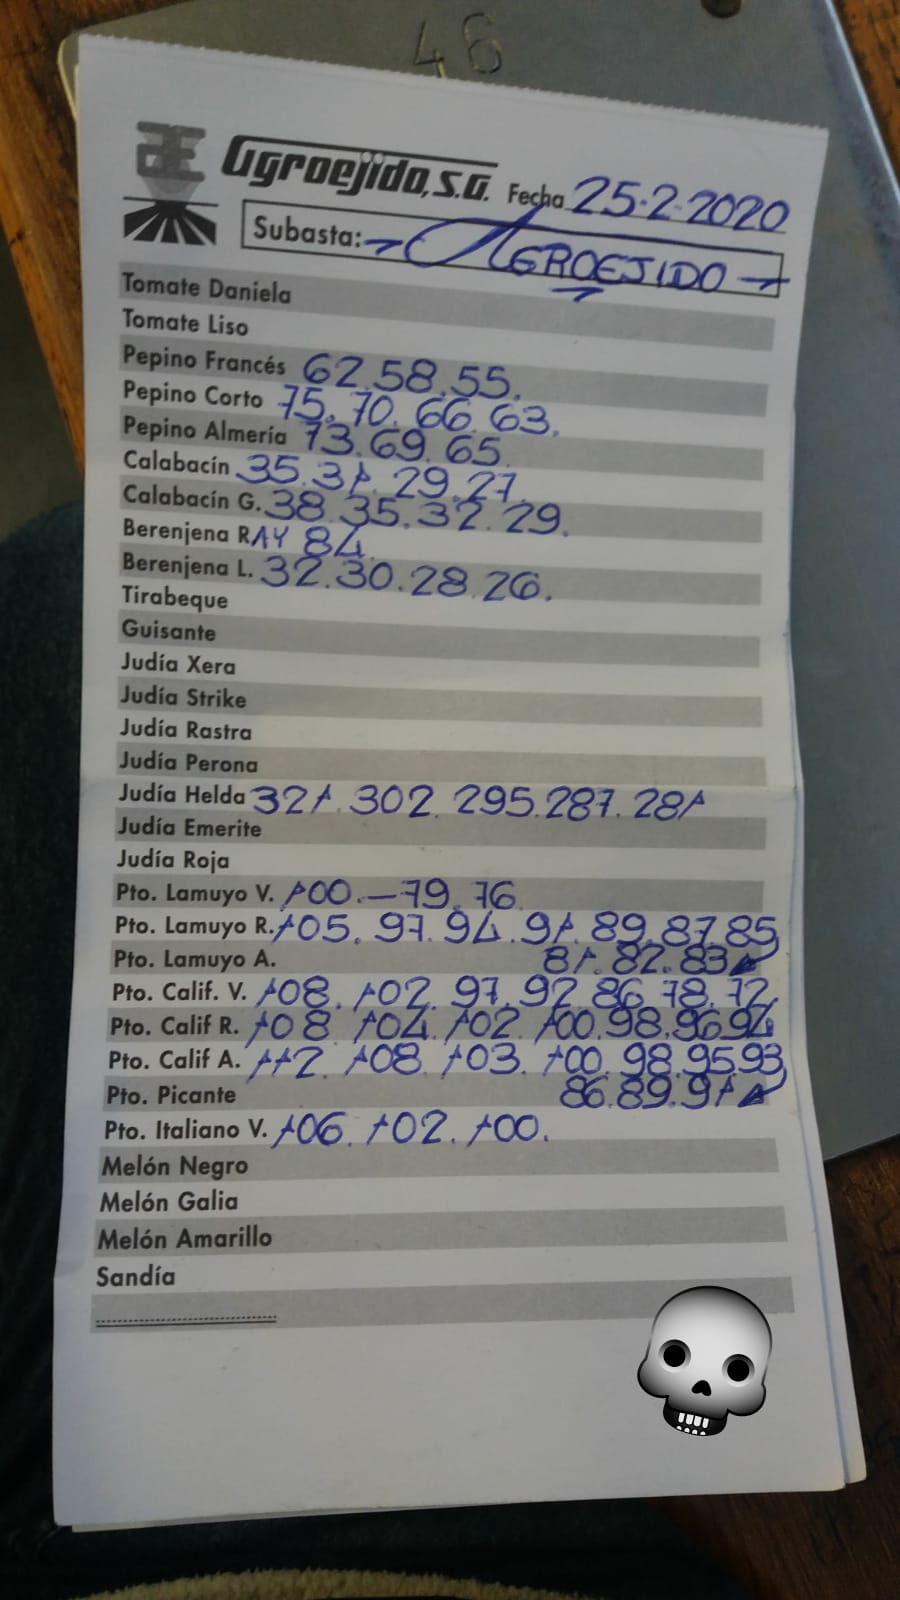 46
Agroejido, S.A. Fecha 25-2-2020
Subasta: AGROEJIDO
Tomate Daniela
Tomate Liso
Pepino Francés 62.58.55.
Pepino Corto 75.70.66.63.
Pepino Almería 73.69.65.
Calabacín 35.31.29.27.
Calabacín G. 38.35.32.29.
Berenjena RAY 84
Berenjena L. 32.30.28.26.
Tirabeque
Guisante
Judía Xera
Judía Strike
Judía Rastra
Judía Perona
Judía Helda 321.302.295.287.281
Judía Emerite
Judía Roja
Pto. Lamuyo V. 100.—79.76.
Pto. Lamuyo R. 105.97.94.91.89.87.85
Pto. Lamuyo A. 81.82.83
Pto. Calif. V. 108.102.97.92.86.78.72.
Pto. Calif R. 108.104.102.100.98.96.94
Pto. Calif A. 112.108.103.100.98.95.93
Pto. Picante 86.89.91
Pto. Italiano V. 106.102.100.
Melón Negro
Melón Galia
Melón Amarillo
Sandía